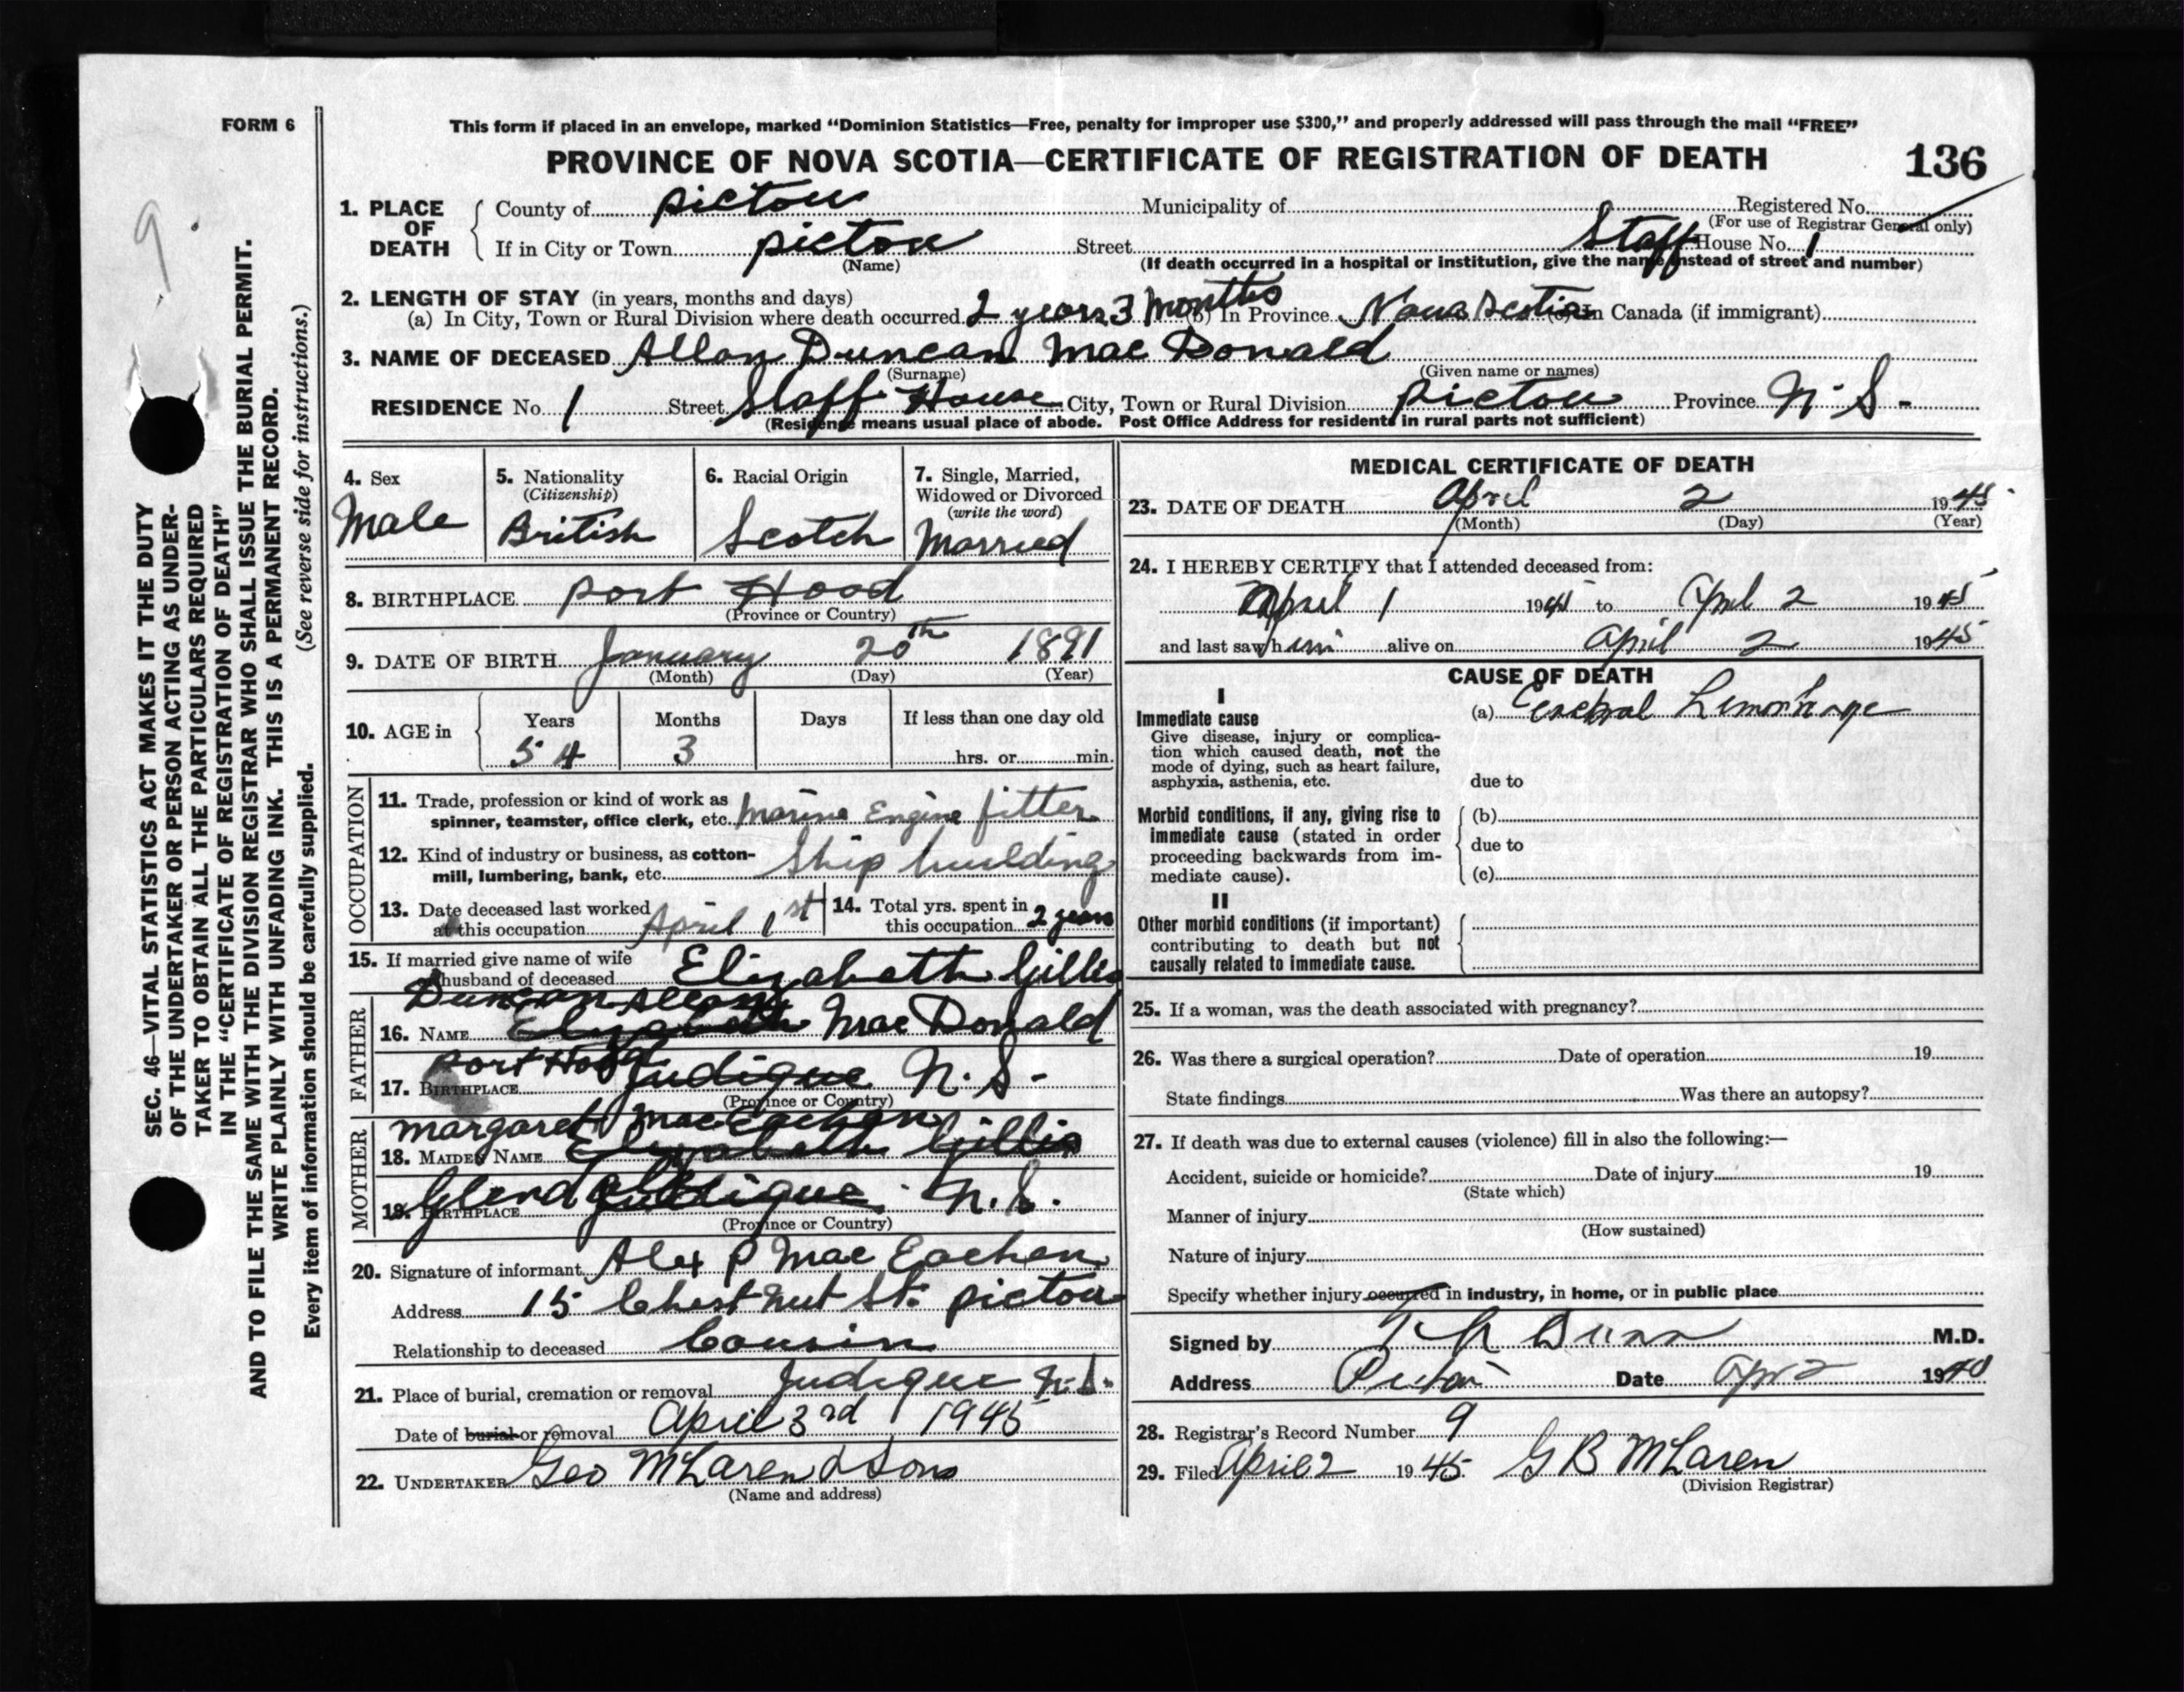 FORM 6
This form if placed in an envelope, marked “Dominion Statistics—Free, penalty for improper use $300,” and properly addressed will pass through the mail “FREE”
PROVINCE OF NOVA SCOTIA—CERTIFICATE OF REGISTRATION OF DEATH
136
9
SEC. 46—VITAL STATISTICS ACT MAKES IT THE DUTY
OF THE UNDERTAKER OR PERSON ACTING AS UNDER-
TAKER TO OBTAIN ALL THE PARTICULARS REQUIRED
IN THE “CERTIFICATE OF REGISTRATION OF DEATH”
AND TO FILE THE SAME WITH THE DIVISION REGISTRAR WHO SHALL ISSUE THE BURIAL PERMIT.
WRITE PLAINLY WITH UNFADING INK. THIS IS A PERMANENT RECORD.
(See reverse side for instructions.)
Every item of information should be carefully supplied.
1. PLACE OF DEATH
County of pictou Municipality of Registered No.
(For use of Registrar General only)
If in City or Town pictou Street Staff House No. 1
(Name) (If death occurred in a hospital or institution, give the name instead of street and number)
2. LENGTH OF STAY (in years, months and days)
(a) In City, Town or Rural Division where death occurred 2 years 3 months (b) In Province Nova Scotia (c) In Canada (if immigrant)
3. NAME OF DECEASED Allan Duncan Mac Donald
(Surname) (Given name or names)
RESIDENCE No. 1 Street Staff House City, Town or Rural Division pictou Province N.S.
(Residence means usual place of abode. Post Office Address for residents in rural parts not sufficient)
4. Sex
Male
5. Nationality
(Citizenship)
British
6. Racial Origin
Scotch
7. Single, Married,
Widowed or Divorced
(write the word)
Married
8. BIRTHPLACE port Hood
(Province or Country)
9. DATE OF BIRTH January 20th 1891
(Month) (Day) (Year)
10. AGE in Years Months Days If less than one day old
54 3 hrs. or min.
OCCUPATION
11. Trade, profession or kind of work as
spinner, teamster, office clerk, etc. Marine Engine fitter
12. Kind of industry or business, as cotton-
mill, lumbering, bank, etc. Ship building
13. Date deceased last worked
at this occupation April 1st
14. Total yrs. spent in
this occupation 2 years
15. If married give name of wife
or husband of deceased Elizabeth Gillis
FATHER
Duncan Allan
16. NAME Elizabeth Mac Donald
port Hood
17. BIRTHPLACE Judique N.S.
(Province or Country)
MOTHER
margaret MacEachen
18. MAIDEN NAME Elizabeth Gillis
19. BIRTHPLACE Judique N.S.
(Province or Country)
20. Signature of informant Alex P Mac Eachen
Address 15 Chestnut St. pictou
Relationship to deceased Cousin
21. Place of burial, cremation or removal Judique N.S.
Date of burial or removal April 3rd 1945
22. UNDERTAKER Geo McLaren & Sons
(Name and address)
MEDICAL CERTIFICATE OF DEATH
23. DATE OF DEATH April 2 1945
(Month) (Day) (Year)
24. I HEREBY CERTIFY that I attended deceased from:
April 1 1945 to April 2 1945
and last saw him alive on April 2 1945
CAUSE OF DEATH
I
Immediate cause
Give disease, injury or complica-
tion which caused death, not the
mode of dying, such as heart failure,
asphyxia, asthenia, etc.
(a) Cerebral Hemorrhage
due to
Morbid conditions, if any, giving rise to
immediate cause (stated in order
proceeding backwards from im-
mediate cause).
(b)
due to
(c)
II
Other morbid conditions (if important)
contributing to death but not
causally related to immediate cause.
25. If a woman, was the death associated with pregnancy?
26. Was there a surgical operation? Date of operation 19
State findings Was there an autopsy?
27. If death was due to external causes (violence) fill in also the following:—
Accident, suicide or homicide? Date of injury 19
(State which)
Manner of injury
(How sustained)
Nature of injury
Specify whether injury occurred in industry, in home, or in public place
Signed by Dunn M.D.
Address Pictou Date Apr 2 19
28. Registrar's Record Number 9
29. Filed April 2 1945 G B McLaren
(Division Registrar)